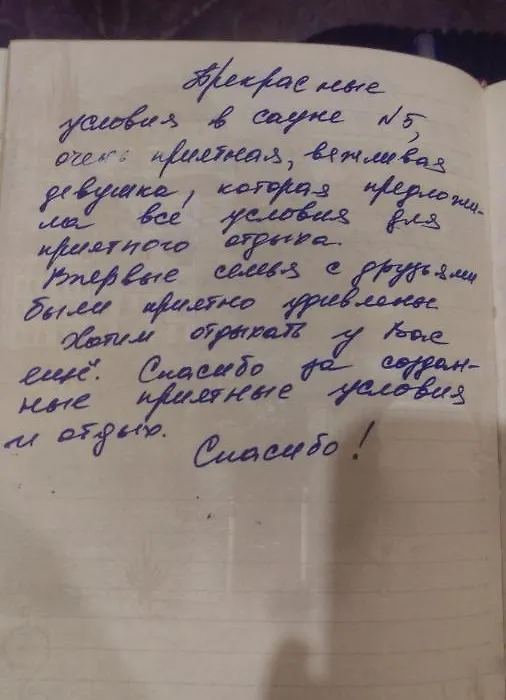 Прекрасные
условия в сауне №5,
очень приятная, вежливая
девушка, которая предложи-
ла все условия для
приятного отдыха.
Впервые семья с друзьями
были приятно удивлены
Хотим отдыхать у Вас
ещё. Спасибо за создан-
ные приятные условия
и отдых.
Спасибо!